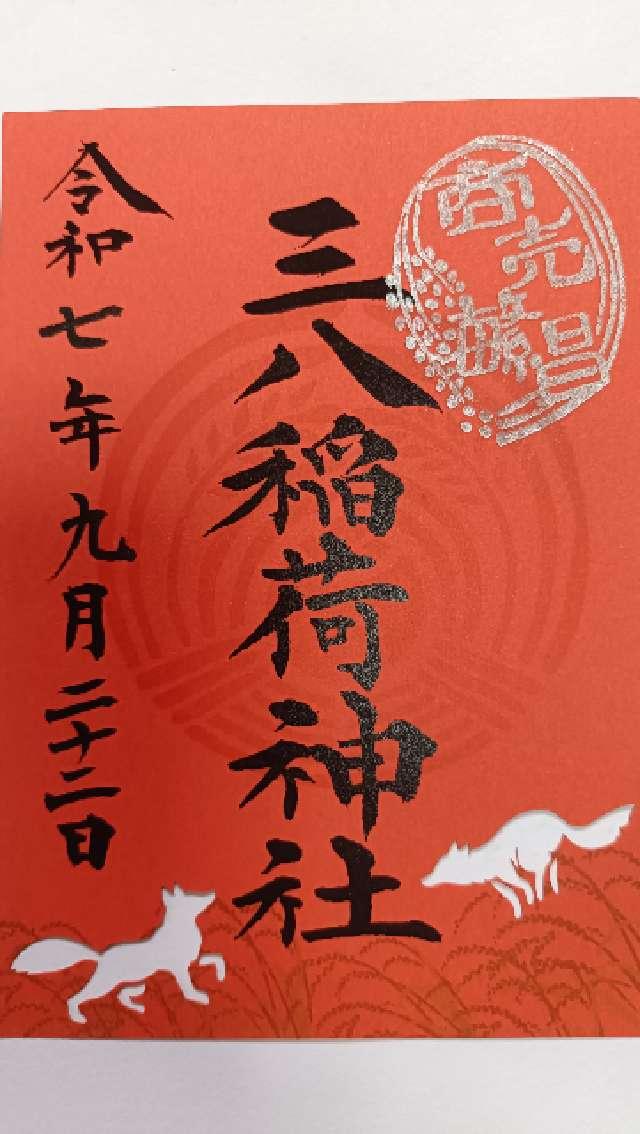 商売繁昌
三八稲荷神社
令和七年九月二十二日